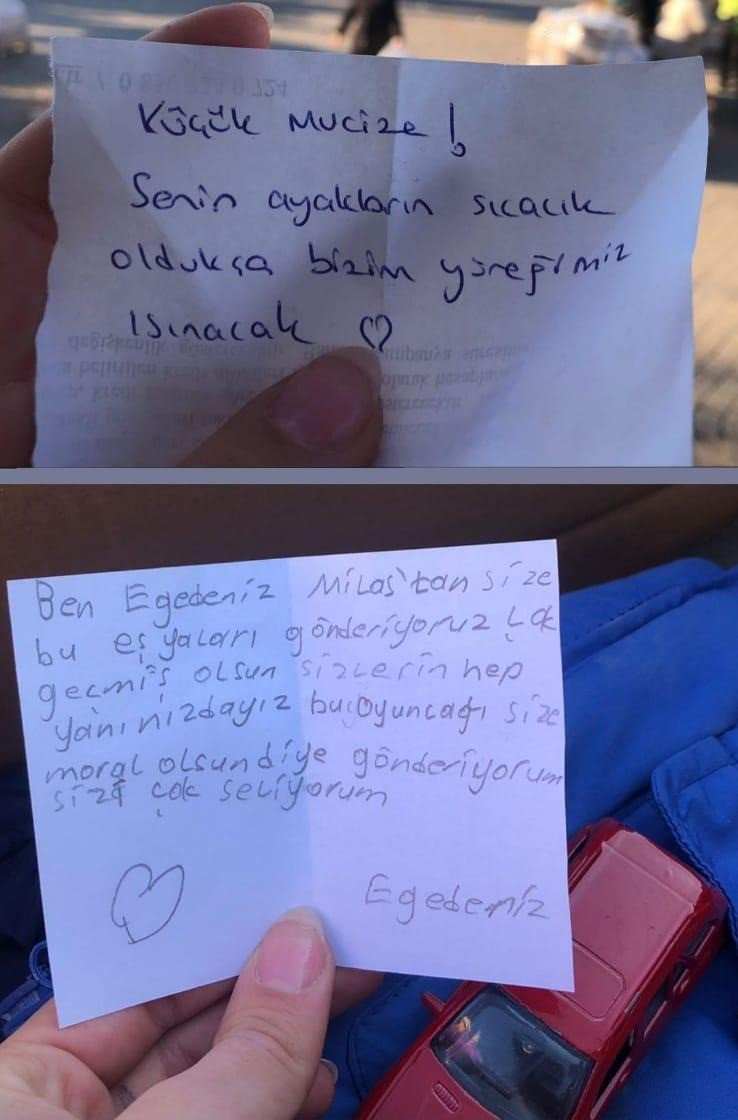 Küçük Mucize!
Senin ayakların sıcacık
oldukça bizim yüreğimiz
ısınacak ♡
Ben Egedeniz Milas'tan size
bu eşyaları gönderiyoruz Çok
geçmiş olsun sizlerin hep
yanınızdayız bu oyuncağı size
moral olsun diye gönderiyorum
sizi çok seviyorum
Egedeniz